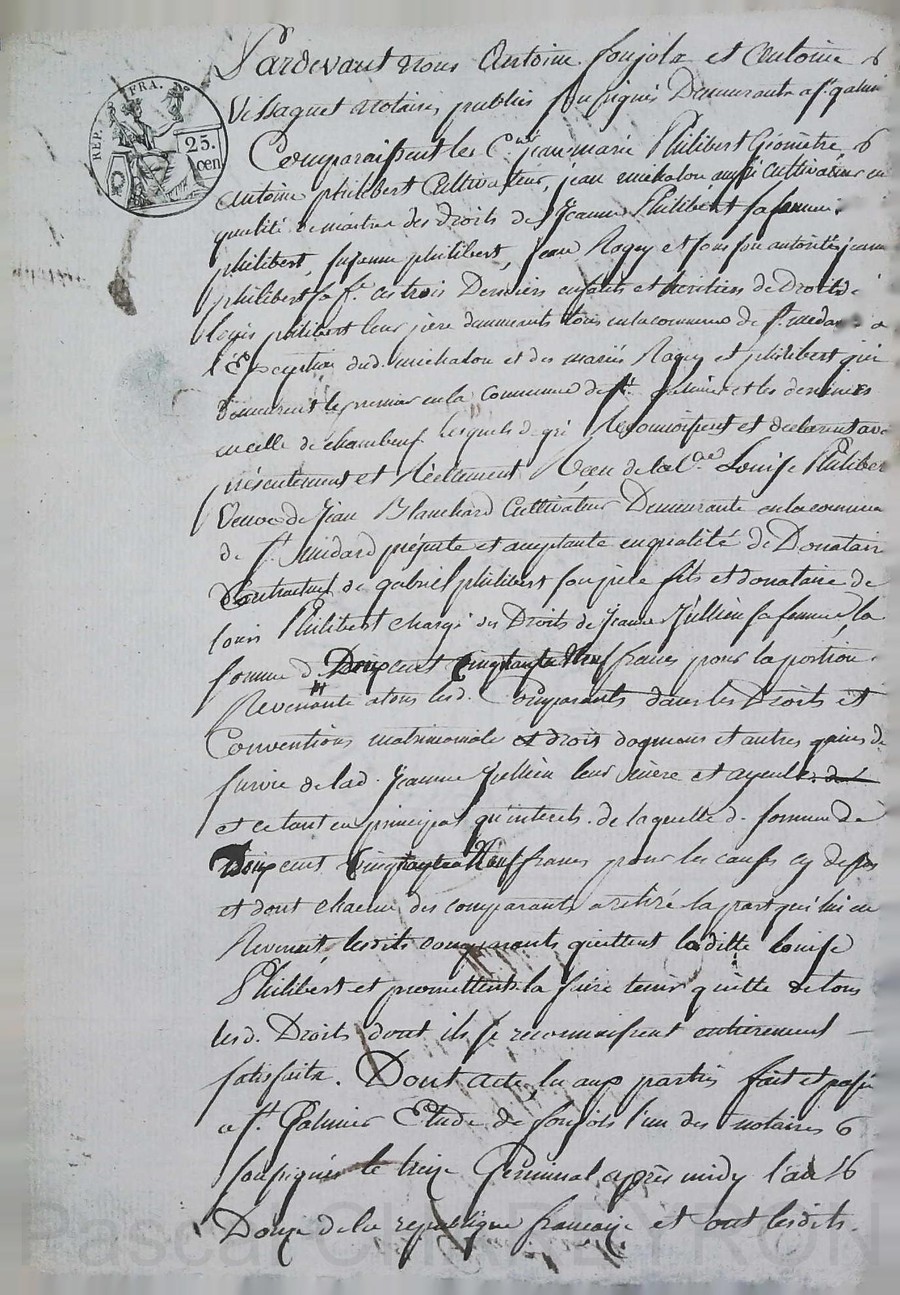 REP. FRA.
25.
cen
Pardevant nous Antoine foujols et Antoine
Vissaguet notaires publics soussignés Demeurants a st. galmier
Comparaissent les Cns. jean marie Philibert Géomètre
Antoine philibert Cultivateur, jean michalon aussi cultivateur en
qualité de maitre des droits de Jeanne Philibert sa femme,
philibert, suzanne philibert, jean Ragey et sous son autorité jeanne
philibert sa fe. ces trois Derniers enfants et heritiers de Droits de
Louis philibert leur père demeurants tous en la commune de st. medard a
l'Exception dud. michalon et des mariés Ragey et philibert qui
demeurent le premier en la commune de st. galmier et les derniers
en celle de chambeuf lesquels de gré Reconnoissent et declarent avoir
présentement et Réelement Reçu de la Ve. Louise Philibert
Veuve de Jean Blanchard Cultivateur Demeurante en la commune
de St. Medard présente et acceptante en qualité de Donataire
Contractuel de gabriel philibert son père fils et donataire de
louis Philibert chargé des Droits de Jeanne Jullien sa femme la
somme de Deux cent cinquante Neuf francs pour la portion
Revenante a tous lesd. Comparants dans les Droits et
Conventions matrimoniale et droits dogmans et autres gains de
survie de lad. Jeanne Jullien leur mère et ayeule
et ce tant en principal qu'interets. de laquelle d. somme de
Deux cent Cinquante Neuf francs pour les causes cy dessus
et dont chacun des comparants a retiré la part qui lui en
Revenait, lesdits comparants quittent laditte louise
Philibert et promettent la faire tenir quitte de tous
lesd. Droits dont ils se reconnoissent entierement
satisfaits. Dont acte, lu aux parties fait et passé
a st. Galmier Etude de foujols l'un des notaires
soussignés le treize Germinal après midy l'an
Douze de la republique française et ont lesdits
Pascal CHAREYRON